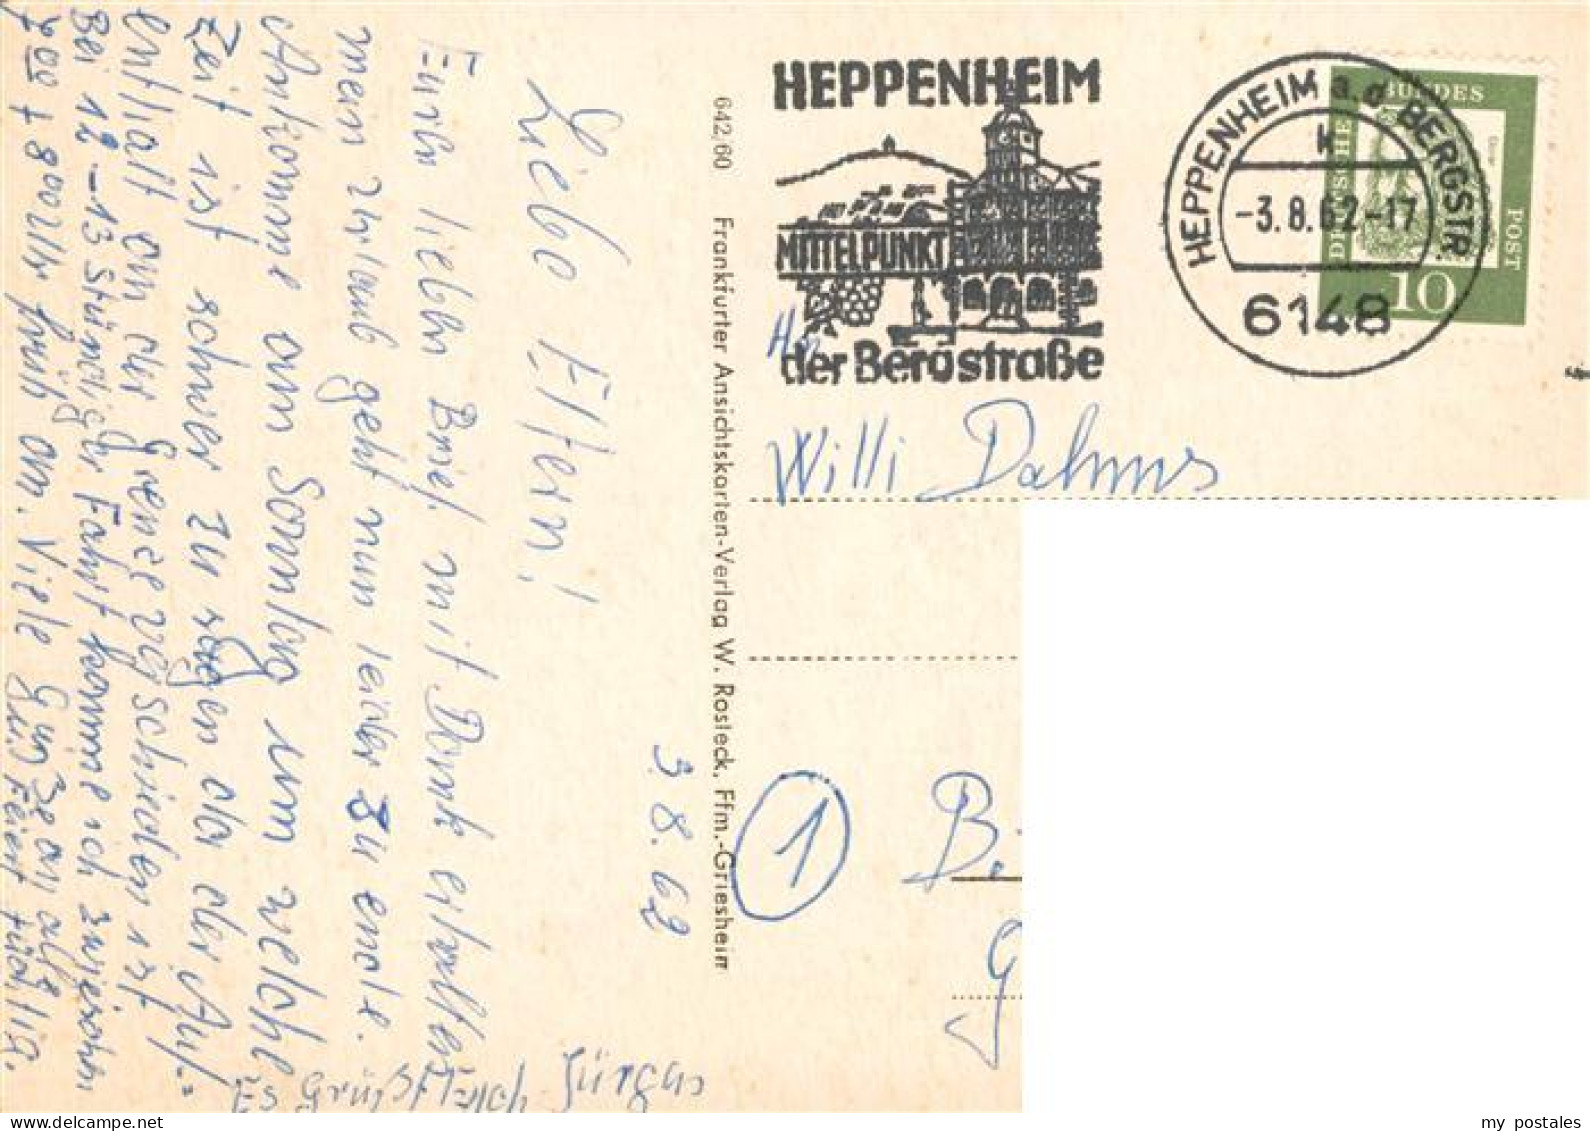 3.8.62
Liebe Eltern!
Euren lieben Brief mit Dank erhalten
mein Urlaub geht nun leider zu ende.
Ankomme am Sonntag um welche
Zeit ist schwer zu sagen da der Auf-
enthalt an der Grenze verschieden ist
Bei 12-13 Stündiger Fahrt komme ich zwischen
700 + 800 Uhr früh an. Viele Grüße an alle
Es Grüßt Euch Jürgen
642/60 Frankfurter Ansichtskarten-Verlag W. Rosleck, Ffm.-Griesheim
HEPPENHEIM
MITTELPUNKT
der Bergstraße
HEPPENHEIM a.d. BERGSTR.
k
-3.8.62-17
6148
DEUTSCHE BUNDES POST
10
Willi Dahms
1
B.
G
my postales